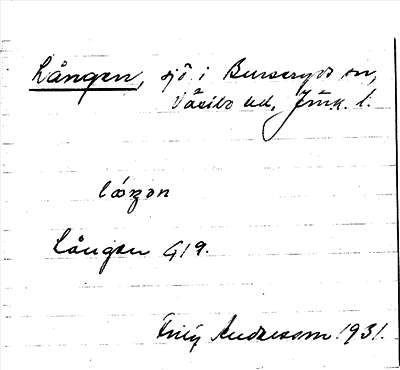 Lången, sjö i Burseryds sn,
Västbo hd, Jönk. l.
Lången G19.
Andersson 1931.